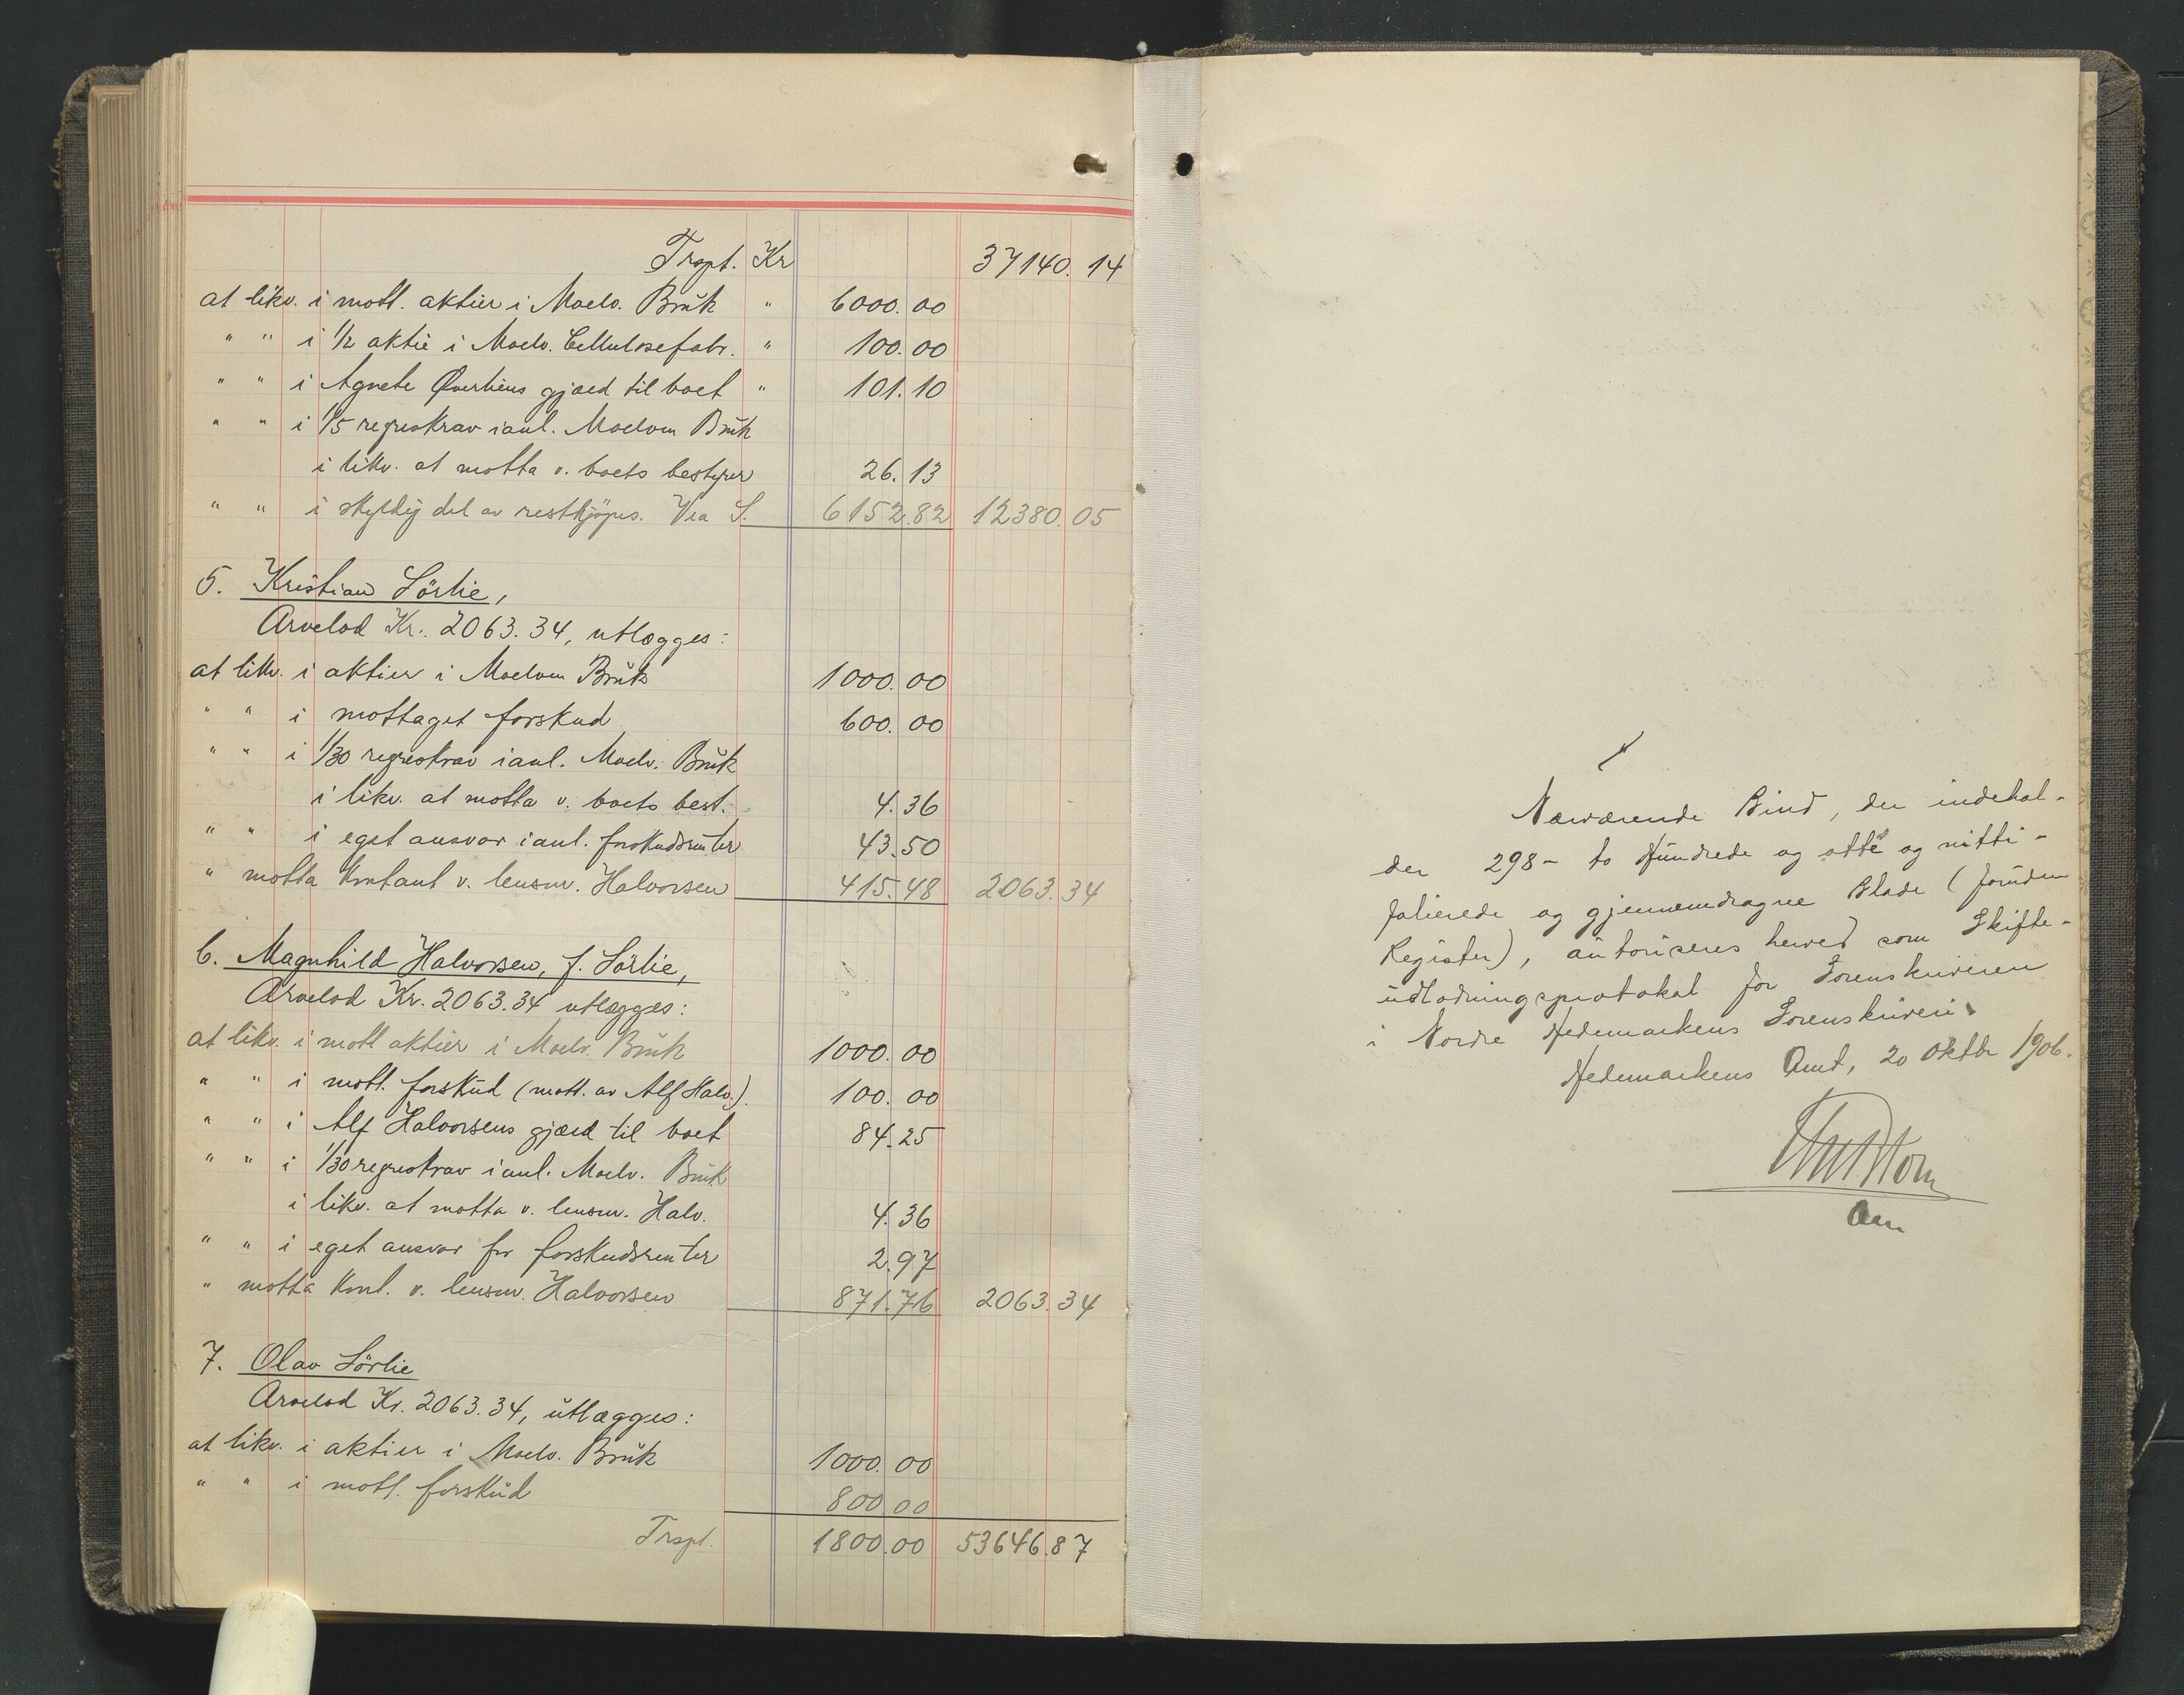 Trspt. Kr 37140.14
at likv. i mott. aktier i Moelv. Bruk " 6000.00
" " i 1/2 aktie i Moelv. Cellulosefabr. " 100.00
" " i Agnete Øverliens gjæld til boet " 101.10
" " i 1/5 regreskrav i anl. Moelven Bruk
i likv. at motta v. boets bestyrer 26.13
" " i skyldig del av restkjöpes. Vea S. 6152.82 12380.05
5. Kristian Sörlie,
Arvelod Kr. 2063.34, utlægges:
at likv. i aktier i Moelven Bruk 1000.00
" " i mottaget forskud 600.00
" " i 1/30 regreskrav i anl. Moelv. Bruk
i likv. at motta v. boets best. 4.36
" " i eget ansvar i anl. forskudsrenter 43.50
" motta kontant v. lensm. Halvorsen 415.48 2063.34
6. Magnhild Halvorsen, f. Sörlie,
Arvelod Kr. 2063.34 utlægges:
at likv. i mott aktier i Moelv. Bruk 1000.00
" " i mott. forskud (mott. av Alf Halv.). 100.00
" " i Alf Halvorsens gjæld til boet 84.25
" " i 1/30 regreskrav i anl. Moelv. Bruk
i likv. at motta v. lensm. Halv. 4.36
" " i eget ansvar for forskudsrenter 2.97
" motta kont. v. lensm. Halvorsen 871.76 2063.34
7. Olav Sörlie
Arvelod Kr. 2063.34, utlægges:
at likv. i aktier i Moelv. Bruk 1000.00
" " i mott. forskud 800.00
Trspt. 1800.00 53646.87
Nærværende Bind, der indehol-
der 298 - to Hundrede og otte og nitti -
folierede og gjennemdragne Blade (foruden
Register), autoriseres herved som Skifte-
udlodningsprotokol for Sorenskriveren
i Nordre Hedemarkens Sorenskriveri.
Hedemarkens Amt, 20 Oktbr 1906.